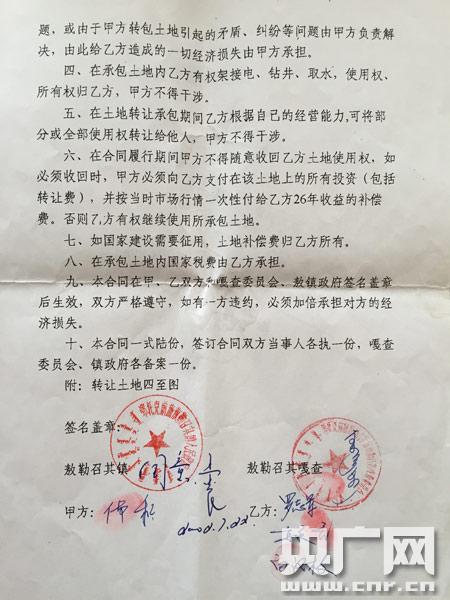 题，或由于甲方转包土地引起的矛盾、纠纷等问题由甲方负责解
决，由此给乙方造成的一切经济损失由甲方承担。
四、在承包土地内乙方有权架接电、钻井、取水，使用权、
所有权归乙方，甲方不得干涉。
五、在土地转让承包期间乙方根据自己的经营能力,可将部
分或全部使用权转让给他人，甲方不得干涉。
六、在合同履行期间甲方不得随意收回乙方土地使用权，如
必须收回时，甲方必须向乙方支付在该土地上的所有投资（包括
转让费），并按当时市场行情一次性付给乙方26年收益的补偿
费。否则乙方有权继续使用所承包土地。
七、如国家建设需要征用，土地补偿费归乙方所有。
八、在承包土地内国家税费由乙方承担。
九、本合同在甲、乙双方和嘎查委员会、敖镇政府签名盖章
后生效，双方严格遵守，如有一方违约，必须加倍承担对方的经
济损失。
十、本合同一式陆份，签订合同双方当事人各执一份，嘎查
委员会、镇政府各备案一份。
附：转让土地四至图
签名盖章：
敖勒召其镇 敖勒召其嘎查
甲方： 乙方：
央广网
www.cnr.cn